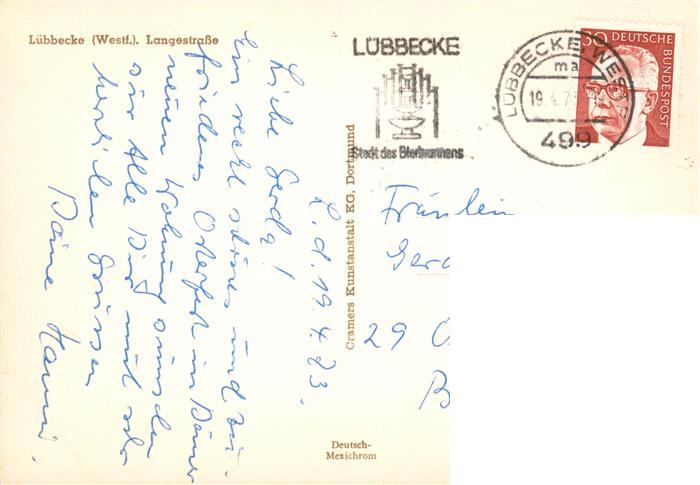 Lübbecke (Westf.). Langestraße
L. d. 19.4.73.
Liebe Gerda!
Ein recht schönes und zu-
friedenes Osterfest in Deiner
neuen Wohnung wünschen
wir Alle Dir mit sehr
herzlichen Grüssen
Deine Hanni.
Cramers Kunstanstalt KG, Dortmund
Deutsch-
Mexichrom
LÜBBECKE
Stadt des Bierbrunnens
LÜBBECKE WESTF
ma
19.4.73
499
30 DEUTSCHE
BUNDESPOST
Fräulein
Gerd
29 O
B